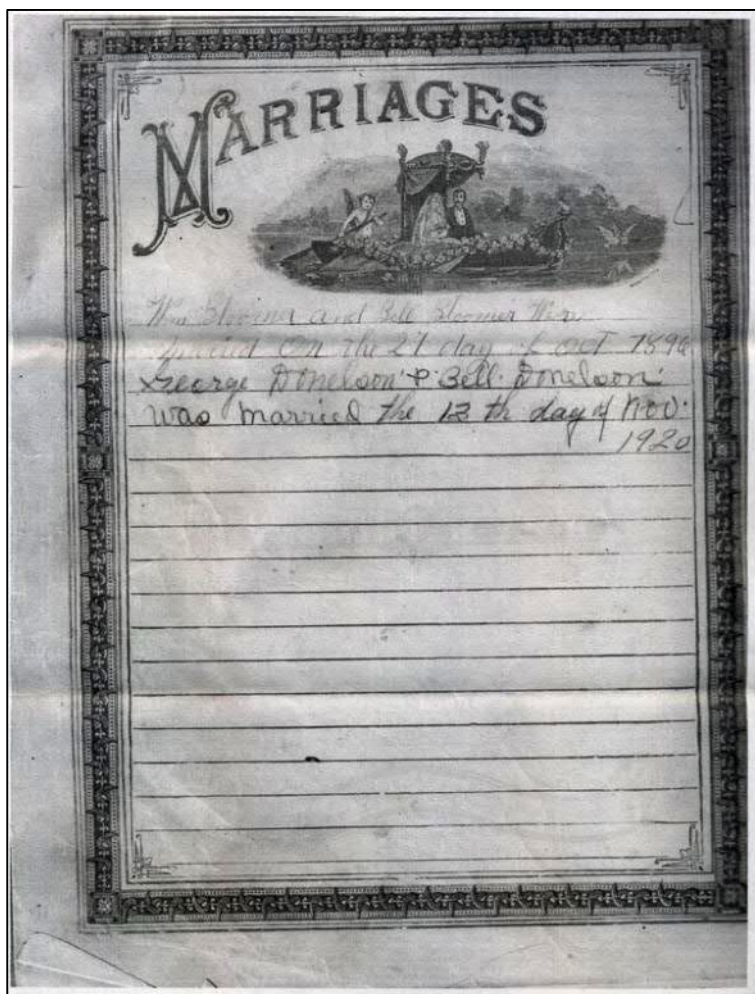 MARRIAGES
Wm Bloomer and Bell Bloomer Were
on the 27 day of oct 1896
George Donelson & Bell Donelson
was married the 13 th day of Nov.
1920